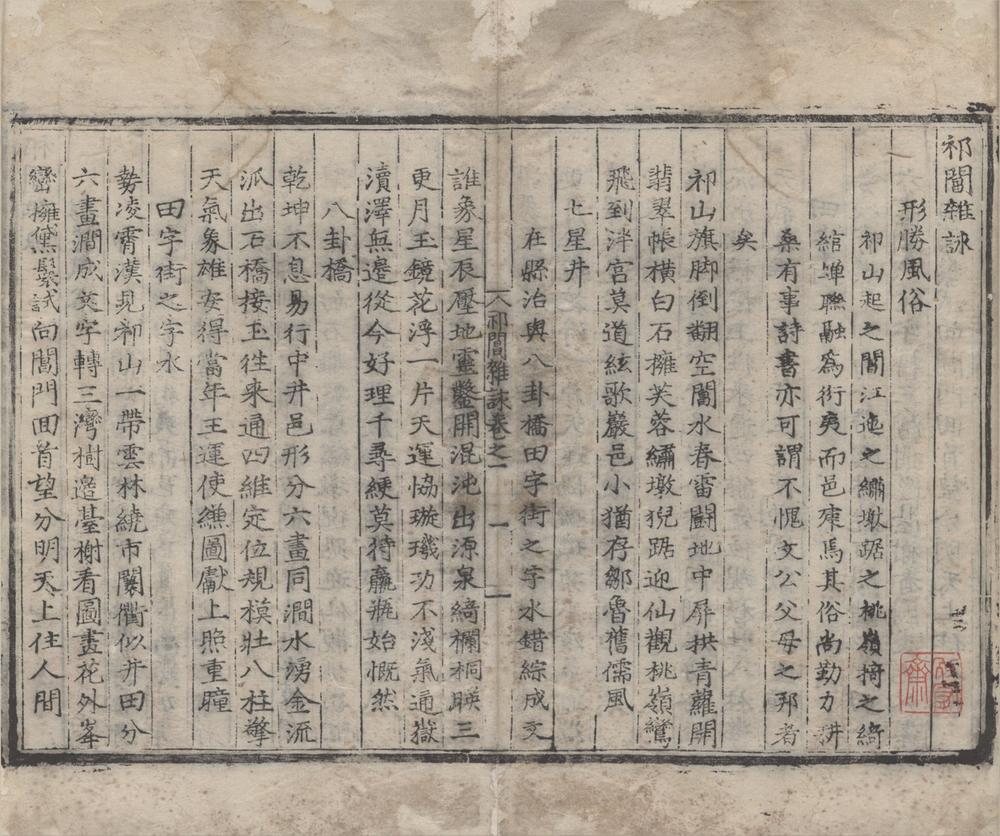 祁閶雜詠
形勝風俗
祁山起之閶江迤之繡墩踞之桃嶺掎之綺
綰蟬聯融為街夷而邑奠焉其俗尚勤力耕
桑有事詩書亦可謂不愧文公父母之邦者
矣
祁山旗脚倒翻空閶水春雷鬬地中屏拱青蘿開
翡翠帳橫白石擁芙蓉繡墩猊踞迎仙觀桃嶺鸞
飛到泮宮莫道絃歌巖邑小猶存鄒魯舊儒風
七星井
在縣治與八卦橋田字街之字水錯綜成文
祁閶雜詠卷之一 一
誰象星辰壓地靈鑿開混沌出源泉綺欄桐暎三
更月玉鏡花浮一片天運恊璇璣功不淺氣通嶽
瀆澤無邊從今好理千尋綆莫待羸瓶始慨然
八卦橋
乾坤不息易行中井邑形分六畫同澗水湧金流
派出石橋接玉徃來通四維定位規模壯八柱擎
天氣象雄安得當年王運使繅圖獻上照重瞳
田字街之字水
勢凌霄漢見祁山一帶雲林繞市闤衢似井田分
六畫澗成文字轉三灣樹邉臺榭看圖畫花外峯
巒擁黛鬟試向閶門回首望分明天上住人間